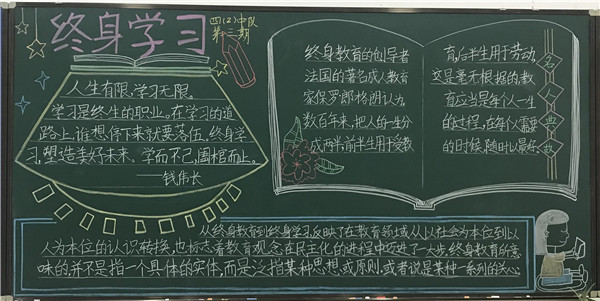 终身学习
四(2)中队
第三期
人生有限,学习无限。
学习是终生的职业。在学习的道
路上,谁想停下来就要落伍。终身学
习,塑造美好未来、学而不已,阖棺而止。
——钱伟长
终身教育的创导者
法国的著名成人教育
家保罗郎格朗认为
数百年来,把人的一生分
成两半前半生用于受教
育,后半生用于劳动
这是毫无根据的教
育应当是每个人一生
的过程,在每个人需要
的时候,随时以最好
名人典故
从终身教育到终身学习,反映了在教育领域从以社会为本位到以
人为本位的认识转换,也标志着教育观念在民主化的进程中迈进了一大步,终身教育所意
味的并不是指一个具体的实体,而是泛指某种思想或原则,或者说是某种一系列的关心